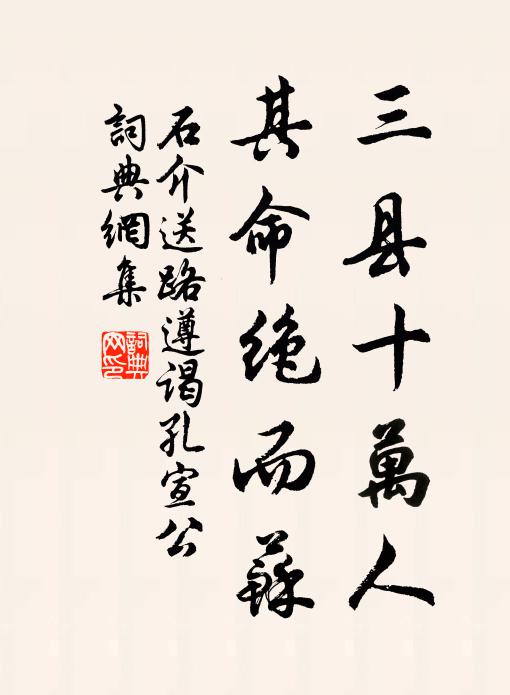 三县十萬人
其命绝而蘇
石介送路遵谒孔宣公
詞典網集
詞典网印